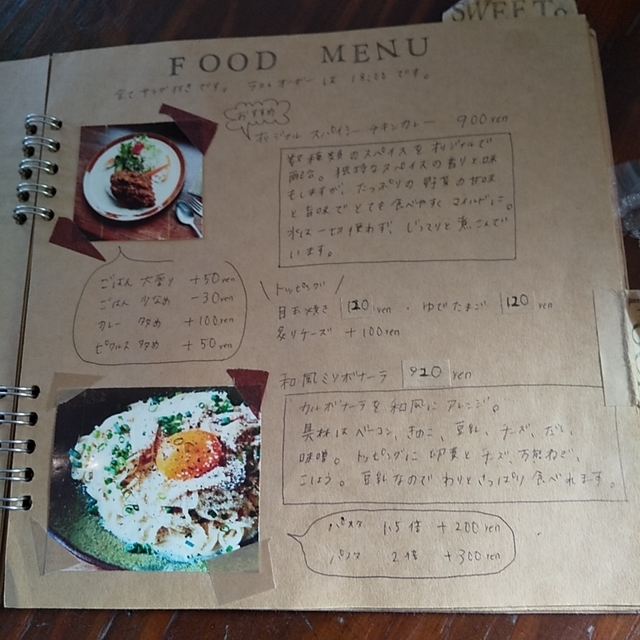 SWEETS
FOOD MENU
全てサラダ付きです。 ラストオーダーは 18:00 です。
おすすめ
オリジナル スパイシーチキンカレー 900yen
数種類のスパイスをオリジナルで
配合。独特なスパイスの香りと味
もしますが、たっぷりの野菜の甘味
と旨味でとても食べやすく
水は一切使わず、じっくりと煮こんで
います。
ごはん 大盛り +50yen
ごはん 少なめ -30yen
カレー 多め +100yen
ピクルス 多め +50yen
トッピング
目玉焼き 120yen ・ ゆでたまご 120yen
炙りチーズ +100yen
和風ミソボナーラ 920yen
カルボナーラを和風にアレンジ。
具材はベーコン、きのこ、豆乳、チーズ、だし、
味噌。トッピングに卵黄とチーズ、万能ねぎ、
こしょう。豆乳なのでわりとさっぱり食べれます。
パスタ 1.5倍 +200yen
パスタ 2倍 +300yen